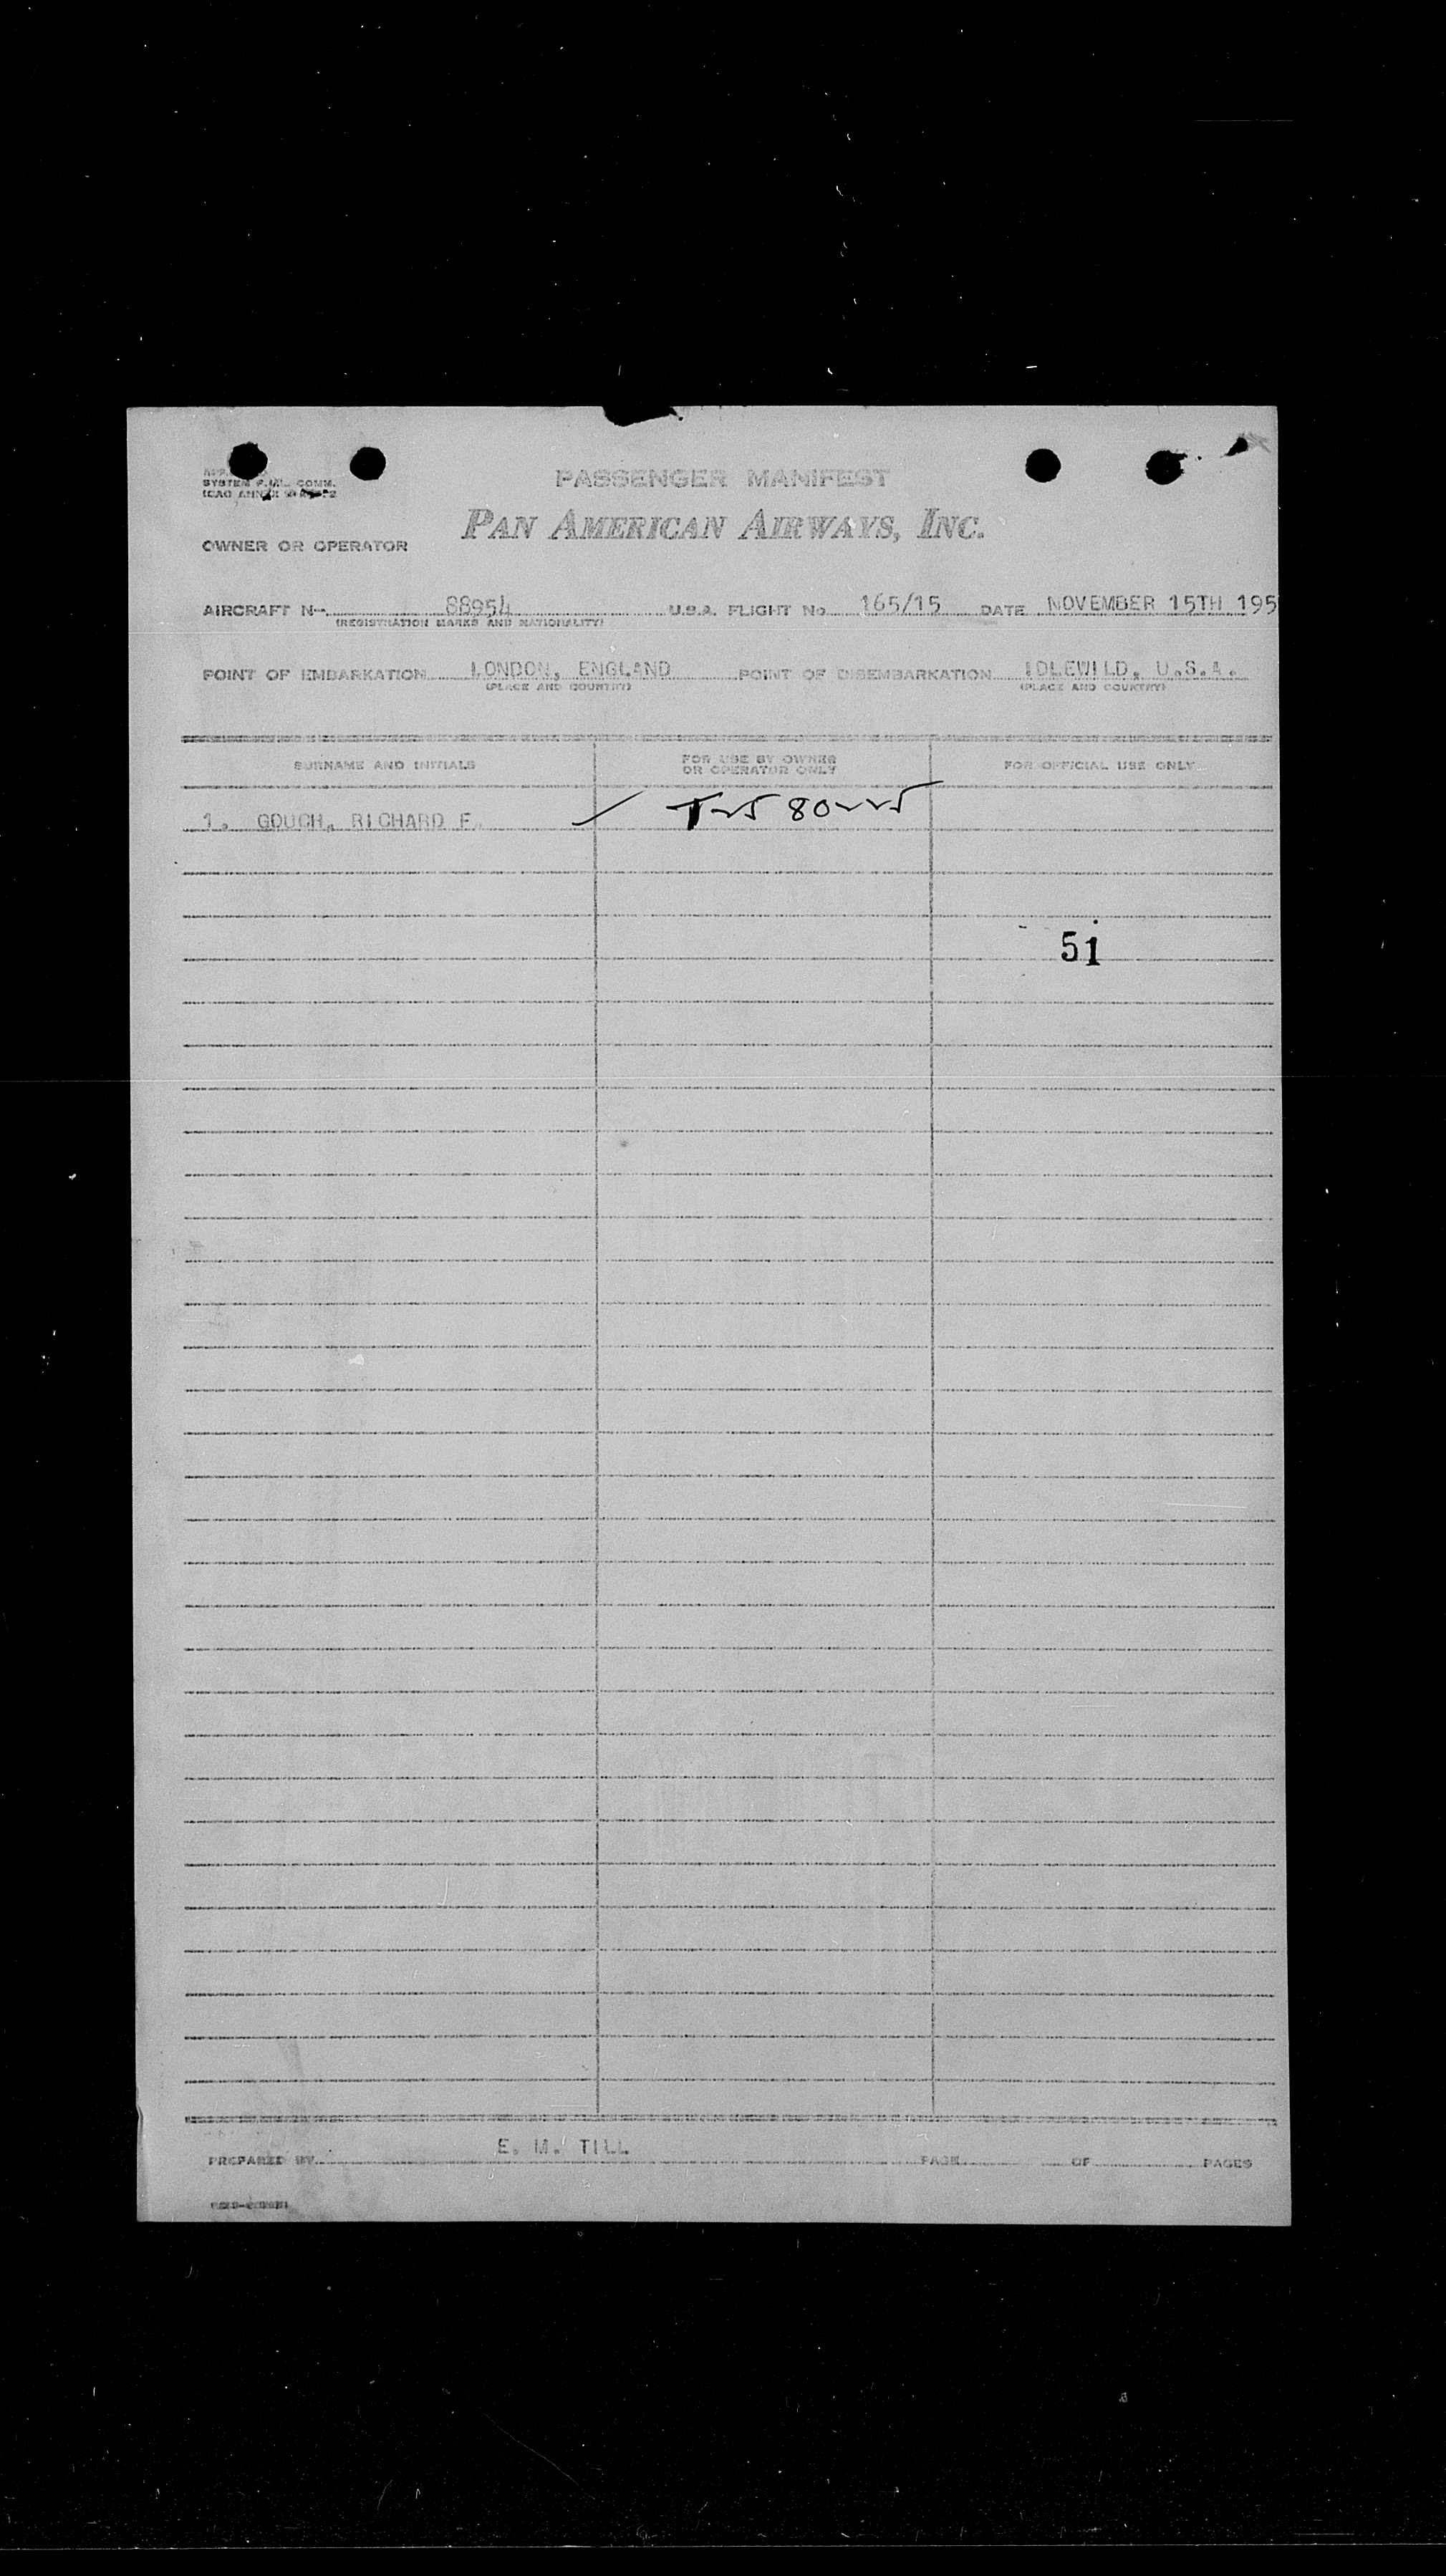 PASSENGER MANIFEST
SYSTEM F.M. COMM.
ICAO ANNEX
PAN AMERICAN AIRWAYS, INC.
OWNER OR OPERATOR
AIRCRAFT N- 88954 U.S.A. FLIGHT No 165/15 DATE NOVEMBER 15TH 195
(REGISTRATION MARKS AND NATIONALITY)
POINT OF EMBARKATION LONDON, ENGLAND POINT OF DISEMBARKATION IDLEWILD, U.S.A.
(PLACE AND COUNTRY) (PLACE AND COUNTRY)
SURNAME AND INITIALS FOR USE BY OWNER OR OPERATOR ONLY FOR OFFICIAL USE ONLY
1. GOUCH, RICHARD F.
51
PREPARED BY E. M. TILL PAGE OF PAGES